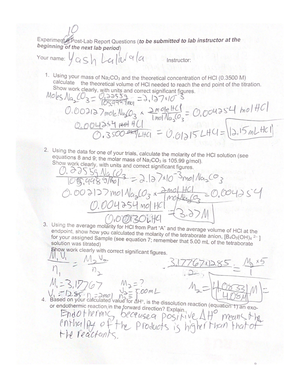 10
Experiment Post-Lab Report Questions (to be submitted to lab instructor at the
beginning of the next lab period)
Your name: Yash Lalwala Instructor:
1. Using your mass of Na₂CO₃ and the theoretical concentration of HCl (0.3500 M)
calculate the theoretical volume of HCl needed to reach the end point of the titration.
Show work clearly, with units and correct significant figures.
Mols Na₂CO₃ = = 2.127×10⁻³
0.002127 mol Na₂CO₃ × 2 mol HCl = 0.004254 mol HCl
1 mol Na₂CO₃
0.004254 mol HCl
0.3500 = 0.01215 L HCl = 12.15 mL HCl
2. Using the data for one of your trials, calculate the molarity of the HCl solution (see
equations 8 and 9; the molar mass of Na₂CO₃ is 105.99 g/mol)
Show work clearly, with units and correct significant figures.
= 2.127 × 10⁻³ mol Na₂CO₃
0.002127 mol Na₂CO₃ × 2 mol HCl = 0.004254
1 mol Na₂CO₃
0.004254 mol HCl
3.27 M
3. Using the average molarity for HCl from Part "A" and the average volume of HCl at the
endpoint, show how you calculated the molarity of the tetraborate anion, [B₄O₅(OH)₄²⁻]
for your assigned Sample (see equation 7; remember that 5.00 mL of the tetraborate
solution was titrated)
Show work clearly with correct significant figures.
M₁V₁ = M₂V₂
n₁ n₂
M₁ = 3.17767 M₂ = ?
4. Based on your calculated value for ΔH°, is the dissolution reaction (equation 1) an exo-
or endothermic reaction in the forward direction? Explain.
Endothermic, because a positive ΔH° means the
enthalpy of the products is higher than that of
the reactants.